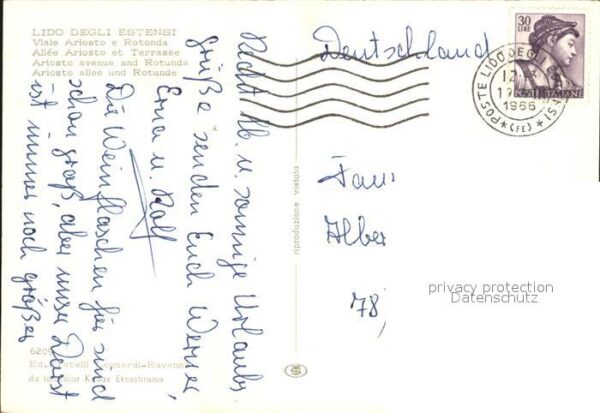 LIDO DEGLI ESTENSI
Viale Ariosto e Rotonda
Allée Ariosto et Terrasse
Ariosto avenue and Rotunda
Ariosto allee und Rotunde
Recht lb. u. sonnige Urlaubs-
grüße senden Euch Werner,
Erna u. Rolf
Die Weinflaschen hier sind
schon groß, aber unser Durst
ist immer noch größer
Deutschland
30
LIRE
POSTE ITALIANE
POSTE LIDO DEGLI
1966
(FE)
Fam.
Alber
78,
riproduzione vietata
privacy protection
Datenschutz
Ed. Fratelli Leonardi-Ravenna
da fotocolor Kodak Ektachrome